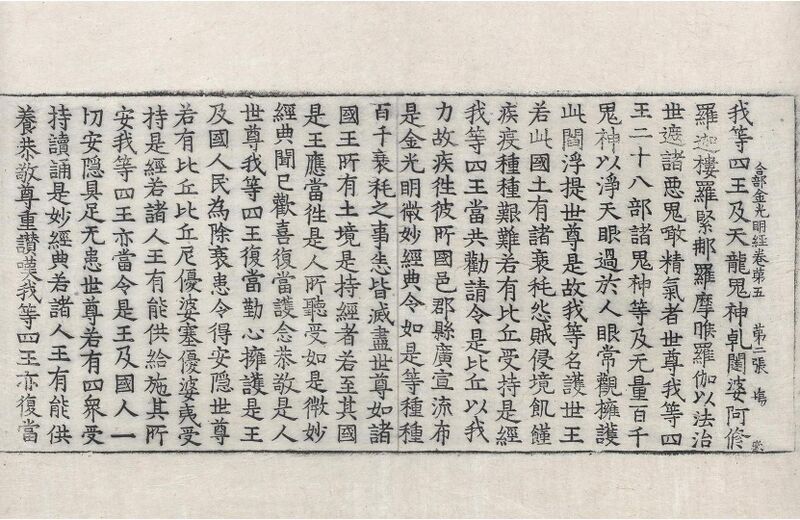 合部金光明経卷第五 第二張 塲
我等四王及天龍鬼神乹闥婆阿脩
羅迦樓羅緊那羅摩睺羅伽以法治
世遮諸惡鬼噉精氣者世尊我等四
王二十八部諸鬼神等及无量百千
鬼神以淨天眼過於人眼常觀擁護
此閻浮提世尊是故我等名護世王
若此國土有諸衰秏怨賊侵境飢饉
疾疫種種艱難若有比丘受持是經
我等四王當共勸請令是比丘以我
力故疾徃彼所國邑郡縣廣宣流布
是金光明微妙經典令如是等種種
百千衰秏之事悉皆滅盡世尊如諸
國王所有土境是持經者若至其國
是王應當徃是人所聽受如是微妙
經典聞已歡喜復當護念恭敬是人
世尊我等四王復當勤心擁護是王
及國人民為除衰患令得安隱世尊
若有比丘比丘尼優婆塞優婆夷受
持是經若諸人王有能供給施其所
安我等四王亦當令是王及國人一
切安隱具足无患世尊若有四衆受
持讀誦是妙經典若諸人王有能供
養恭敬尊重讃嘆我等四王亦復當